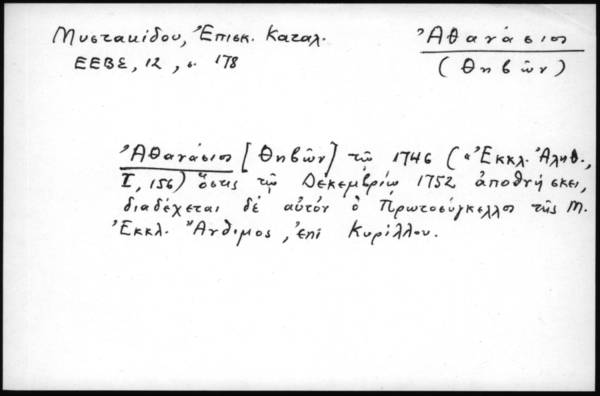 Μυστακίδου, Ἐπισκ. Καταλ.
ΕΕΒΣ, 12, σ. 178
Ἀθανάσιος
(Θηβῶν)
Ἀθανάσιος [Θηβῶν] τῷ 1746 («Ἐκκλ. Ἀληθ.,
I, 156) ὅστις τῷ Δεκεμβρίῳ 1752 ἀποθνήσκει,
διαδέχεται δέ αὐτόν ὁ Πρωτοσύγκελλος τῆς Μ.
Ἐκκλ. Ἄνθιμος, ἐπί Κυρίλλου.